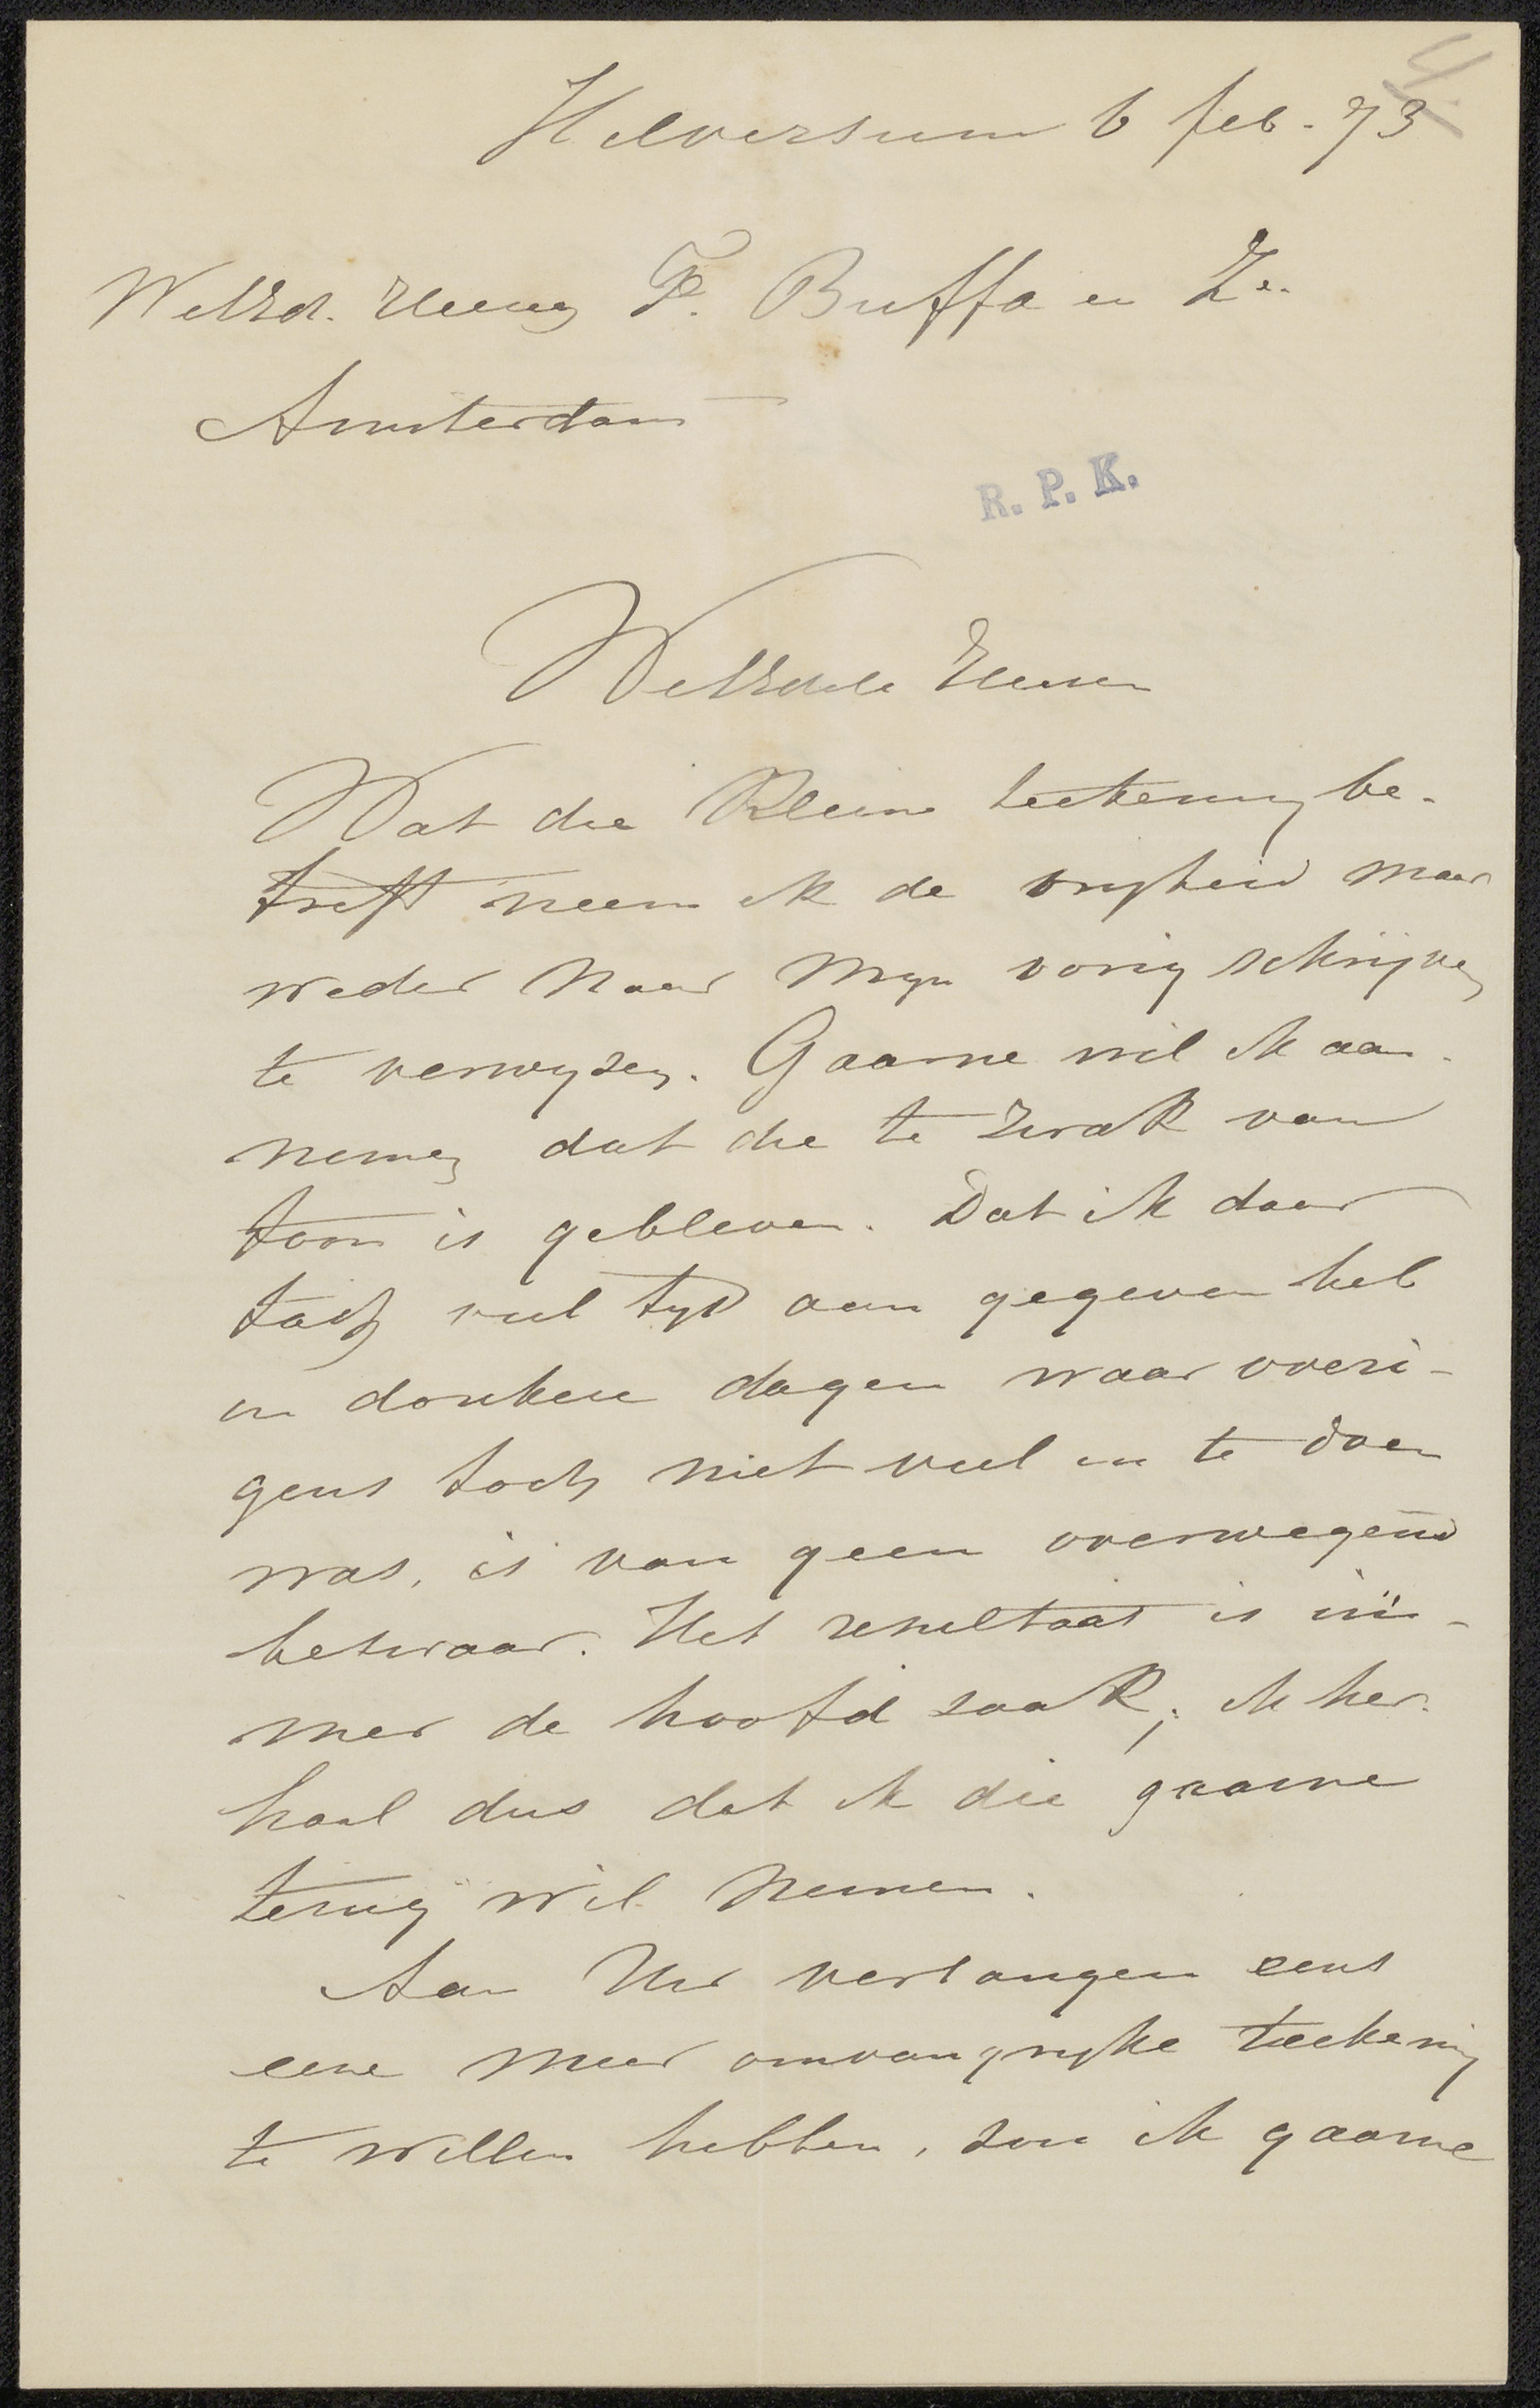 4.
Hilversum 6 feb. 73
WelEd. Heeren F. Buffa en Zn.
Amsterdam
R. P. K.
WelEdele Heeren
Wat die kleine teekening be-
treft neem ik de vryheid maar
weder naar myn vorig schrijven
te verwyzen. Gaarne wil ik aan-
nemen dat die te zwak van
toon is gebleven. Dat ik daar
toch veel tyd aan gegeven heb
in donkere dagen waar overi-
gens toch niet veel in te doen
was, is van geen overwegend
bezwaar. Het resultaat is im-
mer de hoofd zaak; ik her-
haal dus dat ik die gaarne
terug wil nemen.
Aan Uw verlangen eens
eene meer omvangryke teekening
te willen hebben, zou ik gaarne